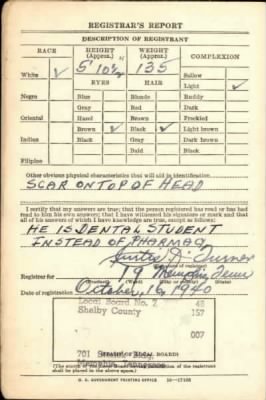 REGISTRAR'S REPORT
DESCRIPTION OF REGISTRANT
RACE HEIGHT (Approx.) WEIGHT (Approx.) COMPLEXION
White ✓ 5' 10½" 135 Sallow
Light ✓
EYES HAIR
Negro Blue Blonde Ruddy
Gray Red Dark
Oriental Hazel Brown Freckled
Brown ✓ Black ✓ Light brown
Indian Black Gray Dark brown
Bald Black
Filipino
Other obvious physical characteristics that will aid in identification
SCAR ON TOP OF HEAD
I certify that my answers are true; that the person registered has read or has had
read to him his own answers; that I have witnessed his signature or mark and that
all of his answers of which I have knowledge are true, except as follows:
HE IS DENTAL STUDENT
INSTEAD OF PHARMACY
Turner
Registrar for 19 Memphis Tenn
(Precinct) (Ward) (City or county) (State)
Date of registration October 16 1940
Local Board No. 2 48
Shelby County 157
007
701
Memphis, Tennessee
(STAMP OF LOCAL BOARD)
shall be placed in the above space.)
U. S. GOVERNMENT PRINTING OFFICE 16-17105